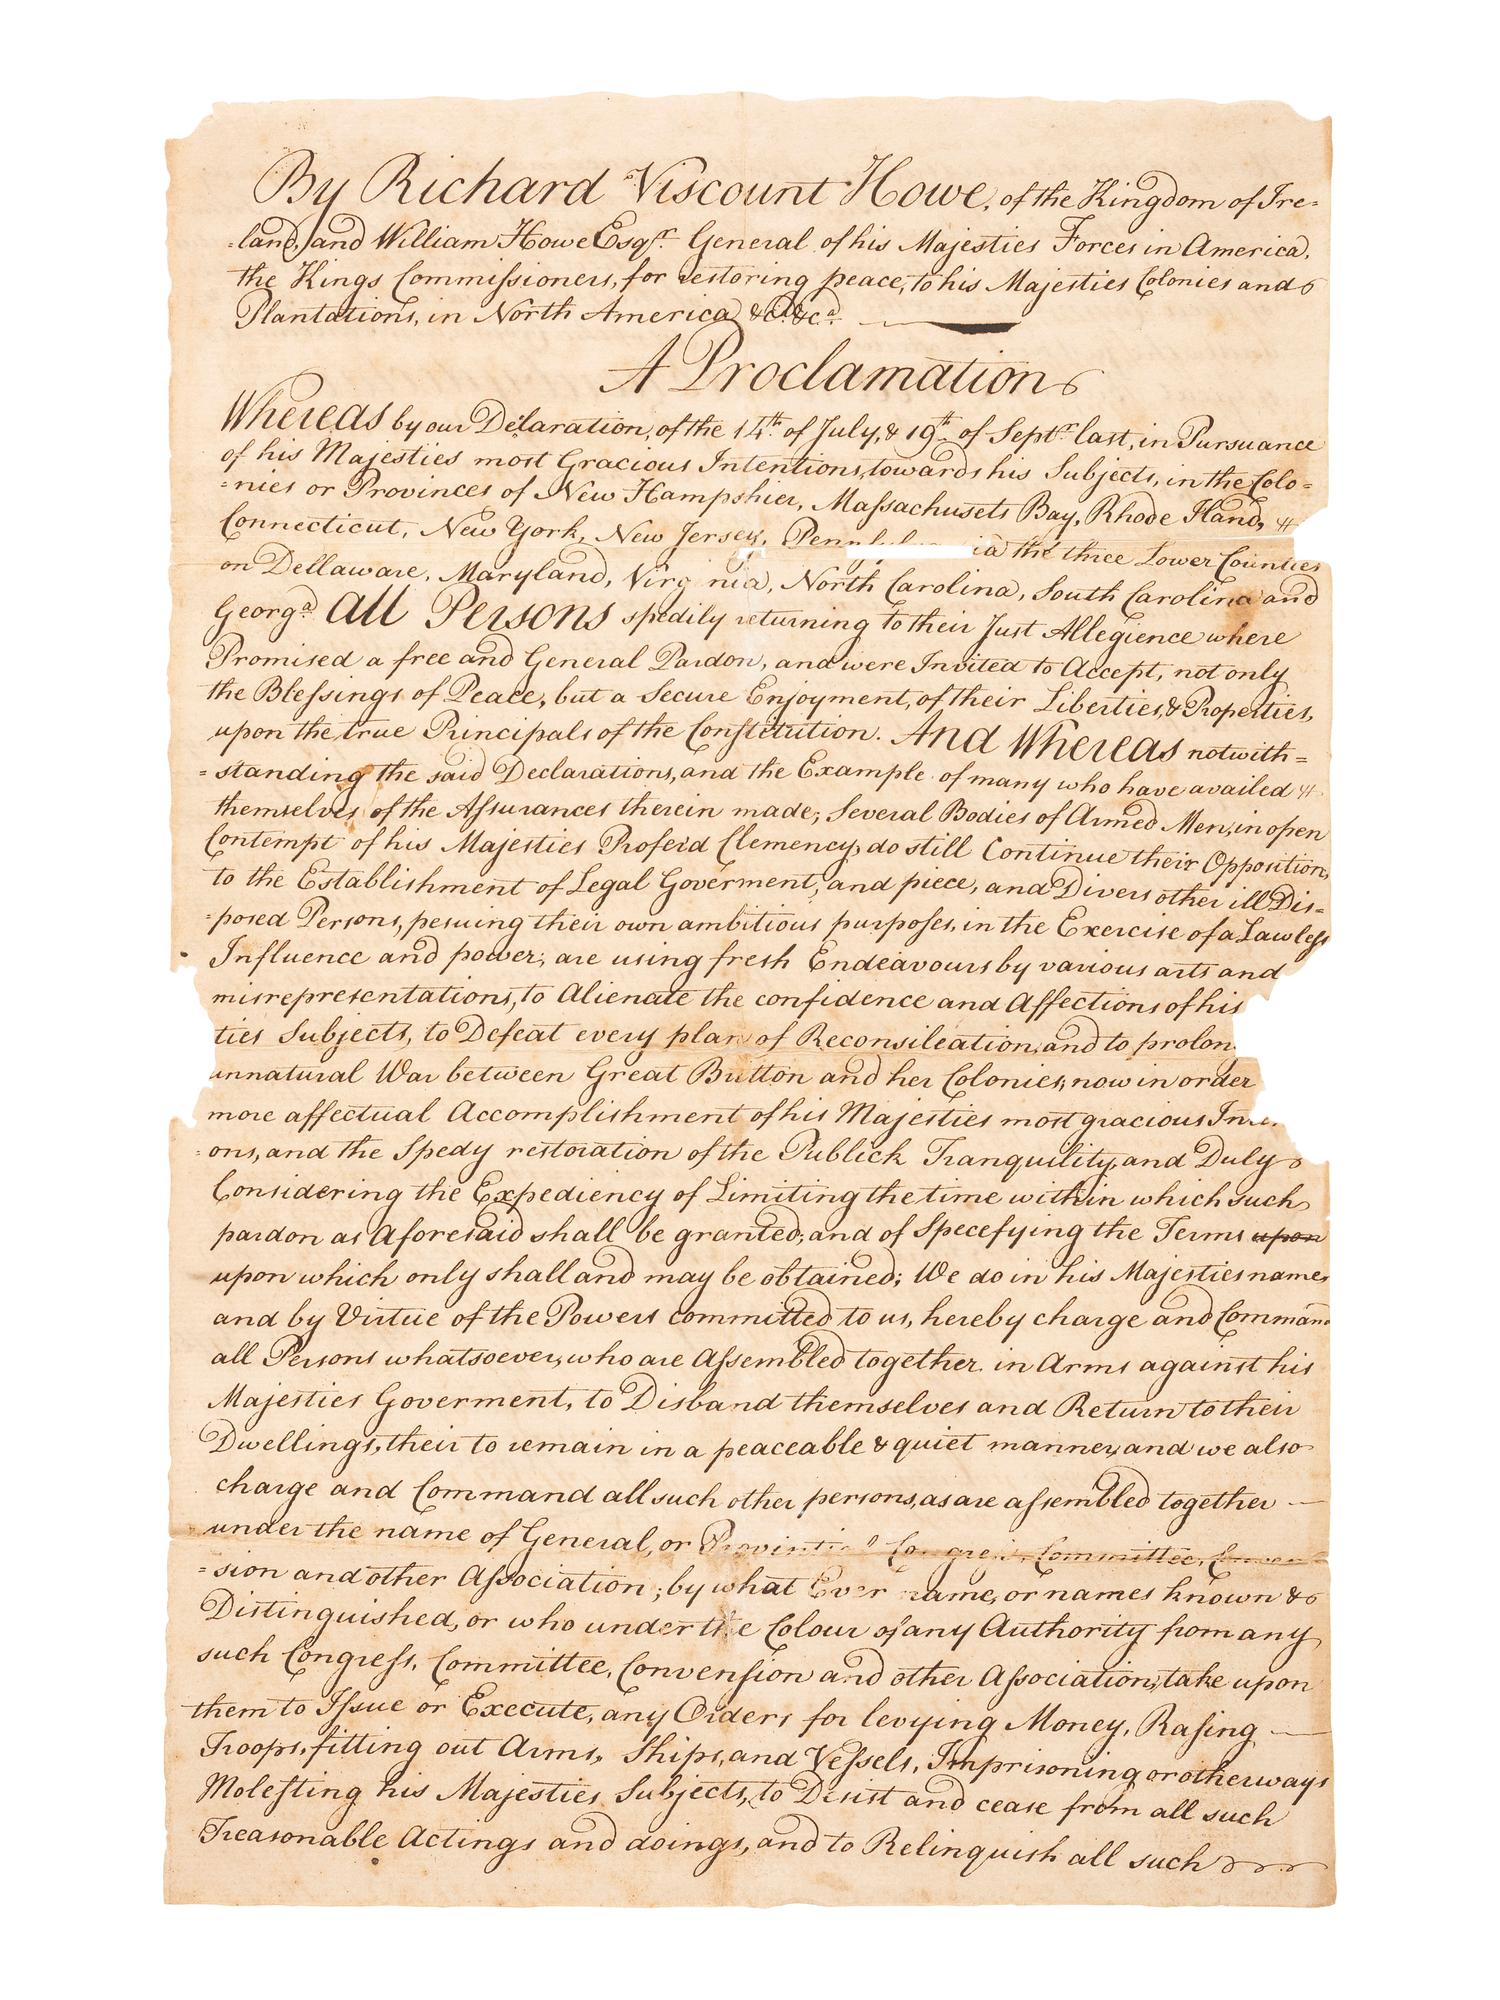 By Richard Viscount Howe, of the Kingdom of Ire=
=land, and William Howe Esqr. General of his Majesties Forces in America,
the Kings Commissioners, for restoring peace, to his Majesties Colonies and
Plantations, in North America &ca. &ca.
A Proclamation
Whereas by our Delaration, of the 14th. of July, & 19th. of Septr. last, in Pursuance
of his Majesties most Gracious Intentions, towards his Subjects, in the Colo=
=nies or Provinces of New Hampshier, Massachusets Bay, Rhode Iland,
Connecticut, New York, New Jersey, the three Lower Counties
on Dellaware, Maryland, Virg nia, North Carolina, South Carolina and
Georga. all Persons spedily returning to their Just Allegience where
Promised a free and General Pardon, and were Invited to Accept, not only
the Blessings of Peace, but a Secure Enjoyment, of their Liberties, & Properties,
upon the true Principals of the Constitution. And Whereas notwith=
=standing the said Declarations, and the Example of many who have availed
themselves of the Assurances therein made; Several Bodies of Armed Men, in open
Contempt of his Majesties Proferd Clemency, do still Continue their Opposition,
to the Establishment of Legal Goverment, and piece, and Divers other ill Dis=
=posed Persons, pesuing their own ambitious purposes, in the Exercise of a Lawless
Influence and power; are using fresh Endeavours by various arts and
misrepresentations, to Alienate the confidence and Affections of his
ties Subjects, to Defeat every plan of Reconsileation, and to prolon
unnatural War between Great Britton and her Colonies; now in order
more affectual Accomplishment of his Majesties most gracious
=ons, and the Spedy restoration of the Publick Tranquility, and Duly
Considering the Expediency of Limiting the time within which such
pardon as Aforesaid shall be granted; and of Specefying the Terms upon
upon which only shall and may be obtained; We do in his Majesties name,
and by Virtue of the Powers committed to us, hereby charge and Command
all Persons whatsoever, who are Assembled together in Arms against his
Majesties Goverment, to Disband themselves and Return to their
Dwellings, their to remain in a peaceable & quiet manner, and we also
charge and Command all such other persons, as are assembled together
under the name of General, or Committee,
=sion and other Association; by what Ever name, or names known &
Distinguished, or who under the Colour of any Authority from any
such Congress, Committee, Convension and other Association; take upon
them to Issue or Execute, any Orders for levying Money, Rasing
Troops, fitting out Arms, Ships, and Vessels, Imprisoning or otherways
Molesting his Majesties Subjects, to Desist and cease from all such
Treasonable Actings and doings, and to Relinquish all such